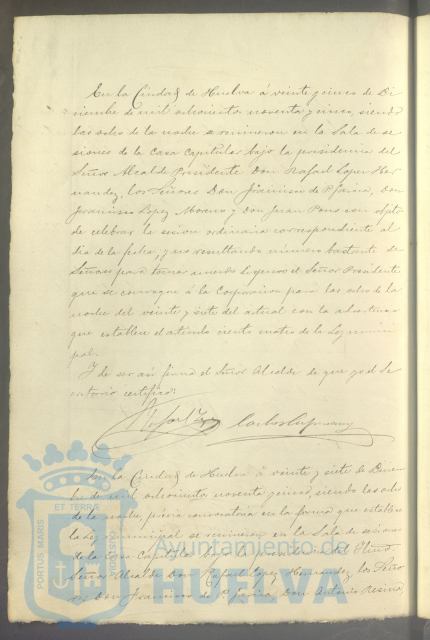 En la Ciudad de Huelva á veinte y cinco de Di
ciembre de mil ochocientos noventa y cinco, siendo
las ocho de la noche se reunieron en la Sala de se
siones de la Casa Capitular bajo la presidencia del
Señor Alcalde Presidente Don Rafael Lopez Her
nandez, los Señores Don Francisco de P. García, Don
Francisco Lopez Moreno y Don Juan Pons con objeto
de celebrar la sesion ordinaria correspondiente al
dia de la fecha, y no resultando número bastante de
Señores para tomar acuerdo dispuso el Señor Presidente
que se convoque á la Corporacion para las ocho de la
noche del veinte y siete del actual con la advertencia
que establece el artículo ciento cuatro de la Ley munici
pal.
Y de ser así firma el Señor Alcalde de que yo el Se
cretario certifico.
Rafael Carlos
En la Ciudad de Huelva á veinte y siete de Diciem
bre de mil ochocientos noventa y cinco, siendo las ocho
de la noche, previa convocatoria en la forma que establece
la Ley municipal se reunieron en la Sala de sesiones
de la Casa Capitular bajo la presidencia del Iltmo
Señor Alcalde Don Rafael Lopez Hernandez, los Seño
res Don Francisco de P. García, Don Antonio
PORTUS MARIS
ET TERRAE
CUSTODIA
Ayuntamiento de
HUELVA